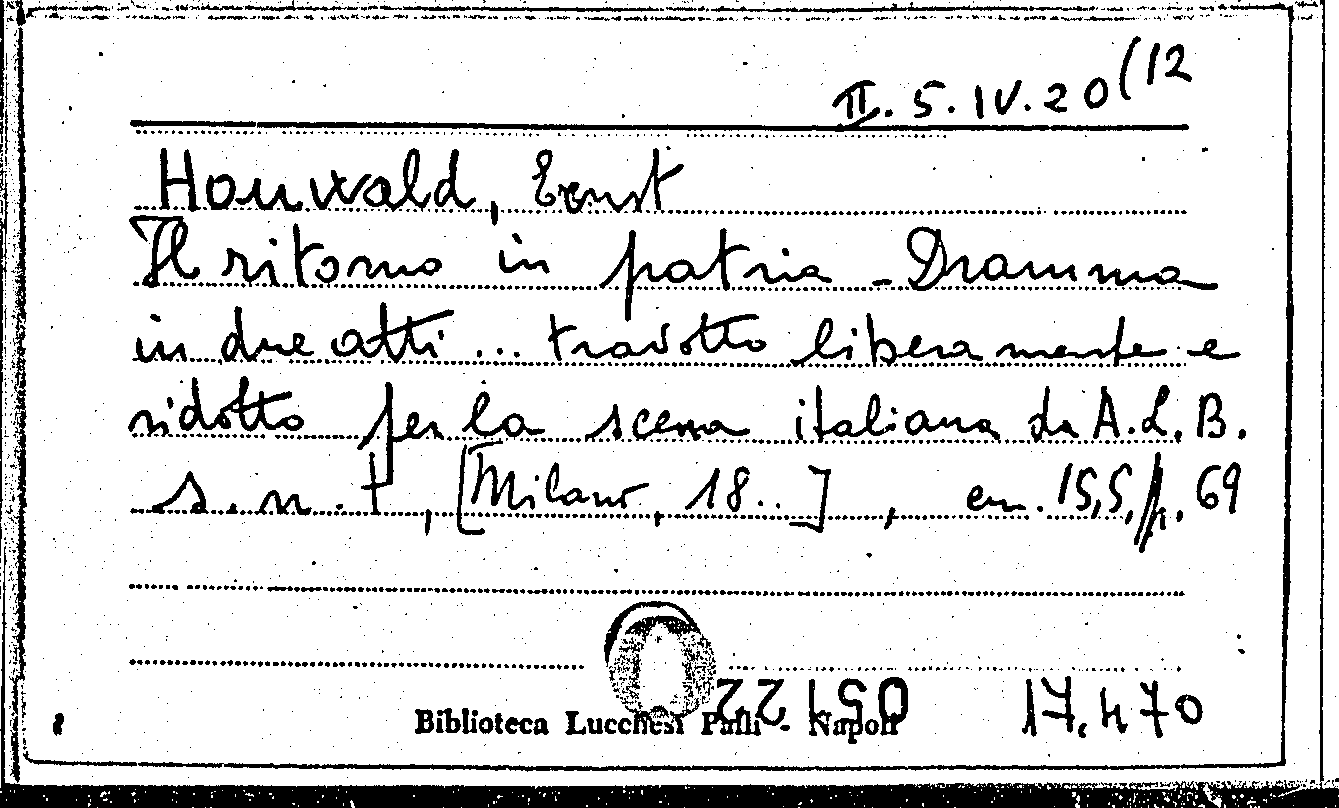 II. 5. IV. 20 (12
Houwald, Ernst
Il ritorno in patria - Dramma
in due atti ... tradotto liberamente e
ridotto per la scena italiana da A. L. B.
s. n. t, [Milano, 18..] , cm. 15,5, p. 69
Biblioteca Lucchesi Palli - Napoli
17.470